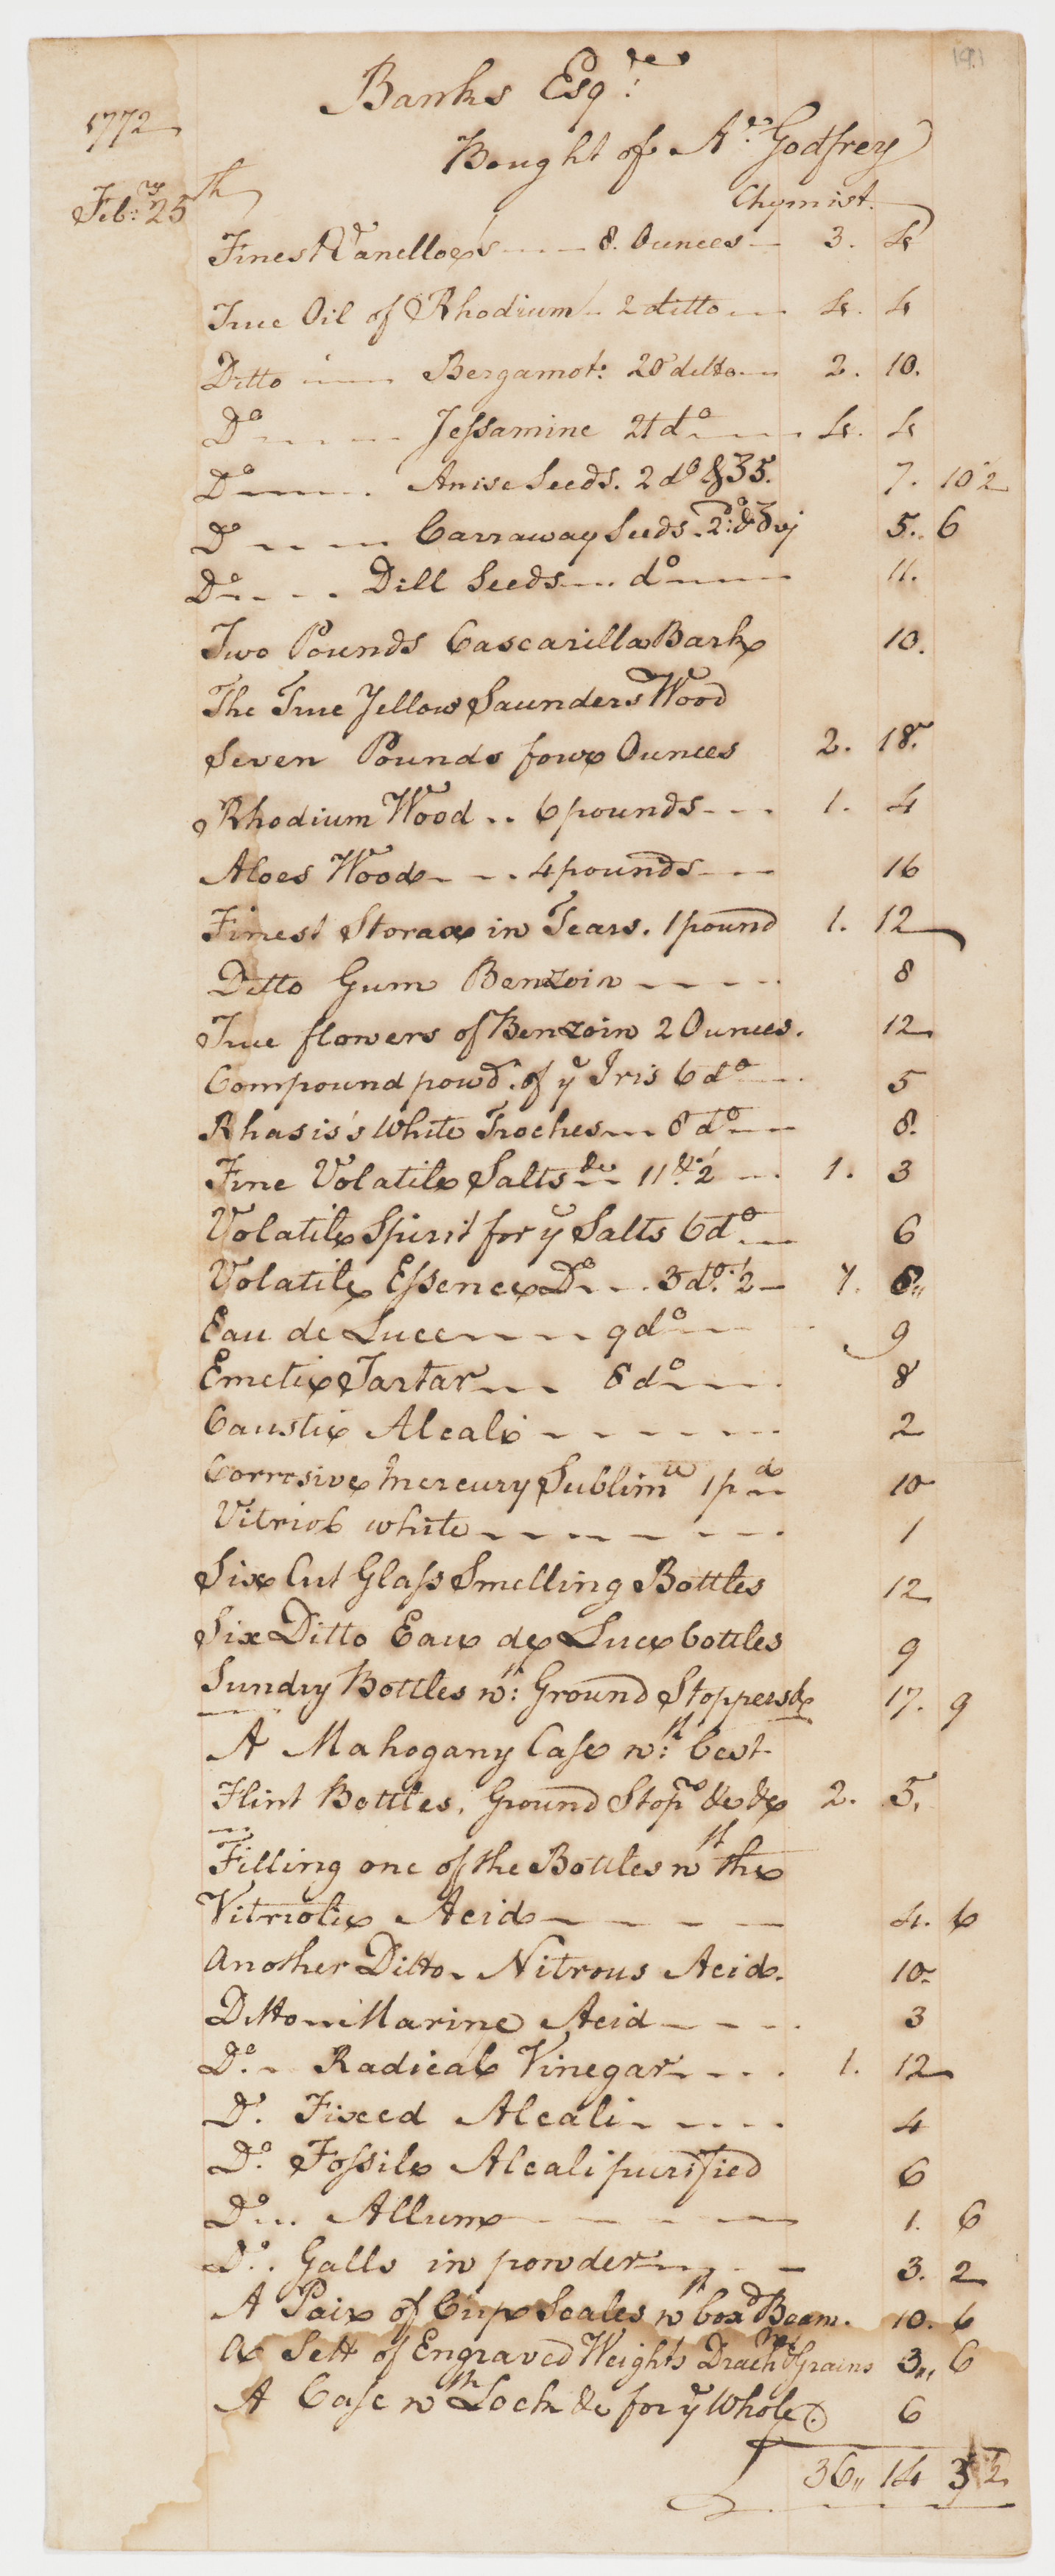 191
Banks Esqr.
1772
Bought of A. Godfrey
Chymist.
Feb:ry 25th
Finest Vanelloes 8. Ounces 3. 4
True Oil of Rhodium 2 ditto 4. 4
Ditto Bergamot: 20 ditto 2. 10.
Do Jessamine 21 do 4. 4
Do Anise Seeds. 2 do & ʒ5. 7. 10 1/2
Do Carraway Seeds. 2: do & ʒvj 5. 6
Do Dill Seeds do 11.
Two Pounds Cascarilla Bark 10.
The True Yellow Saunders Wood
Seven Pounds four Ounces 2. 18.
Rhodium Wood .. 6 pounds 1. 4
Aloes Wood 4 pounds 16
Finest Storax in Tears. 1 pound 1. 12
Ditto Gum Benzoin 8
True flowers of Benzoin 2 Ounces. 12
Compound powdr. of ye Iris 6 do 5
Rhasis's White Troches 8 do 8.
Fine Volatile Salts &c 11 &. 1/2 1. 3
Volatile Spirit for ye Salts 6 do 6
Volatile Essence Do 3 do. 1/2 7. 6
Eau de Luce 9 do 9
Emetic Tartar 8 do 8
Caustic Alcali 2
Corrosive Mercury Sublimte 1 pd 10
Vitriol white 1
Six Cut Glass Smelling Bottles 12
Six Ditto Eau de Luce bottles 9
Sundry Bottles wth: Ground Stoppers &c 17. 9
A Mahogany Case wth: best
Flint Bottles, Ground Stoprs &c &c 2. 5.
Filling one of the Bottles wth the
Vitriolic Acid 4. 6
Another Ditto Nitrous Acid. 10
Ditto Marine Acid 3
Do. Radical Vinegar 1. 12
Do. Fixed Alcali 4
Do. Fossile Alcali purified 6
Do Allum 1. 6
Do. Galls in powder 3. 2
A Pair of Cup Scales wth box'd Beam. 10. 6
A Sett of Engraved Weights Drachms Grains 3,, 6
A Case wth Lock &c for ye Whole 6
£ 36,, 14 3 1/2